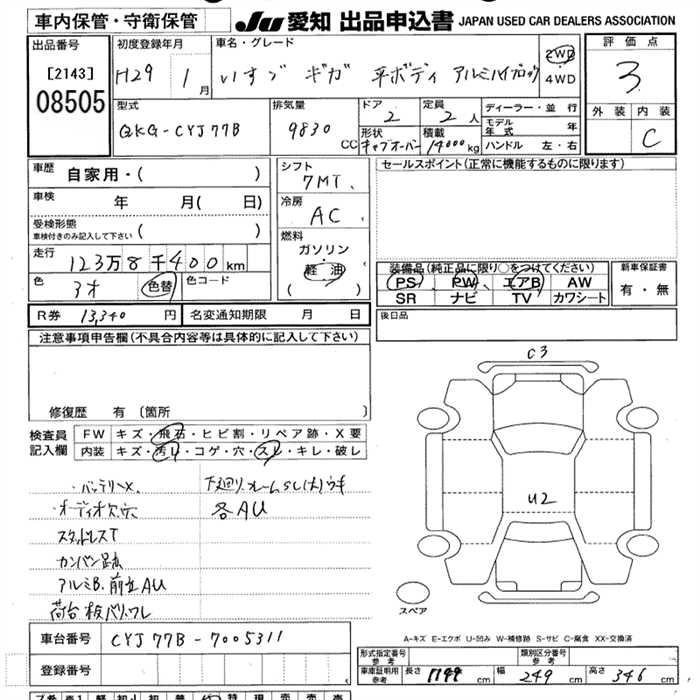 車内保管・守衛保管
JU 愛知 出品申込書 JAPAN USED CAR DEALERS ASSOCIATION
出品番号
[2143]
08505
初度登録年月
H29年 1月
車名・グレード
いすゞ ギガ 平ボディ アルミハイブロック
2WD
4WD
評価点
3
外装 内装
C
型式
QKG-CYJ77B
排気量
9830 CC
ドア
2
定員
2人
形状
キャブオーバー
積載
14000kg
ディーラー・並行
モデル年式 年
ハンドル 左・右
車歴 自家用・( )
車検 年 月( 日)
受検形態
車検付きのみ記入して下さい ( )
走行 123万8千400km
色 3オ 色替 色コード
R券 13,340円 名変通知期限 月 日
シフト
7MT
冷房
AC
燃料
ガソリン
軽油
( )
セールスポイント(正常に機能するものに限ります)
装備品(純正品に限り○をつけてください)
PS PW エアB AW
SR ナビ TV カワシート
新車保証書
有・無
後日品
注意事項申告欄(不具合内容等は具体的に記入して下さい)
修復歴 有〔箇所 〕
検査員記入欄
FW キズ・飛石・ヒビ割・リペア跡・X要
内装 キズ・汚レ・コゲ・穴・スレ・キレ・破レ
・バッテリーX、 下廻リフレームSC(大)ウキ
・オーディオ欠穴 各AU
スタッドレスT
カンバン跡
アルミB.前立AU
荷台板バリ、ワレ
C3
U2
スペア
A-キズ E-エクボ U-凹み W-補修跡 S-サビ C-腐食 XX-交換済
車台番号 CYJ77B-7005311
登録番号
形式指定番号 参考
類別区分番号 参考
車庫証明用 参考 長さ 1199cm 幅 249cm 高さ 346cm